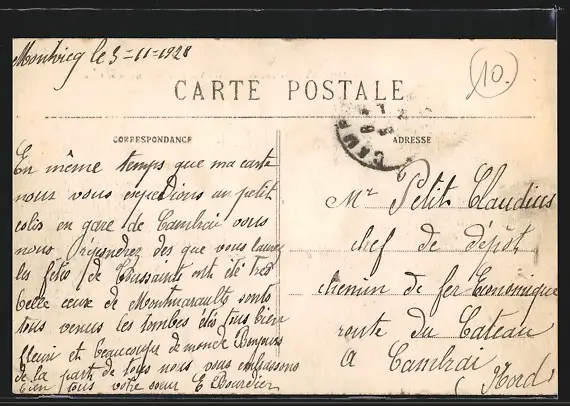 Montvicq le 3-11-1928
10.
CARTE POSTALE
CORRESPONDANCE
ADRESSE
En même temps que ma carte
nous vous expedions un petit
colis en gare de Cambrai vous
nous répondrez des que vous l'aurez
les fêtes de Toussaints ont été très
belle ceux de Montmarault sont
tous venus les tombes étés tous bien
fleuri et beaucoup de monde Bonjours
de la part de tous nous vous embrassons
bien tous votre sœur E Bourdier
Mr Petit Claudius
chef de dépôt
chemin de fer Economique
route du Cateau
a Cambrai
(Nord)